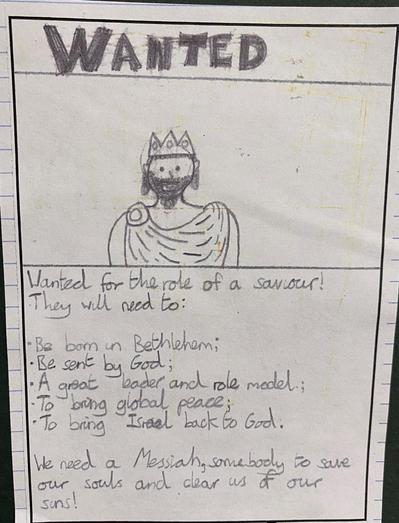 WANTED
Wanted for the role of a saviour!
They will need to:
· Be born in Bethlehem;
· Be sent by God;
· A great leader and role model.;
· To bring global peace;
· To bring Israel back to God.
We need a Messiah, somebody to save
our souls and clear us of our
sins!